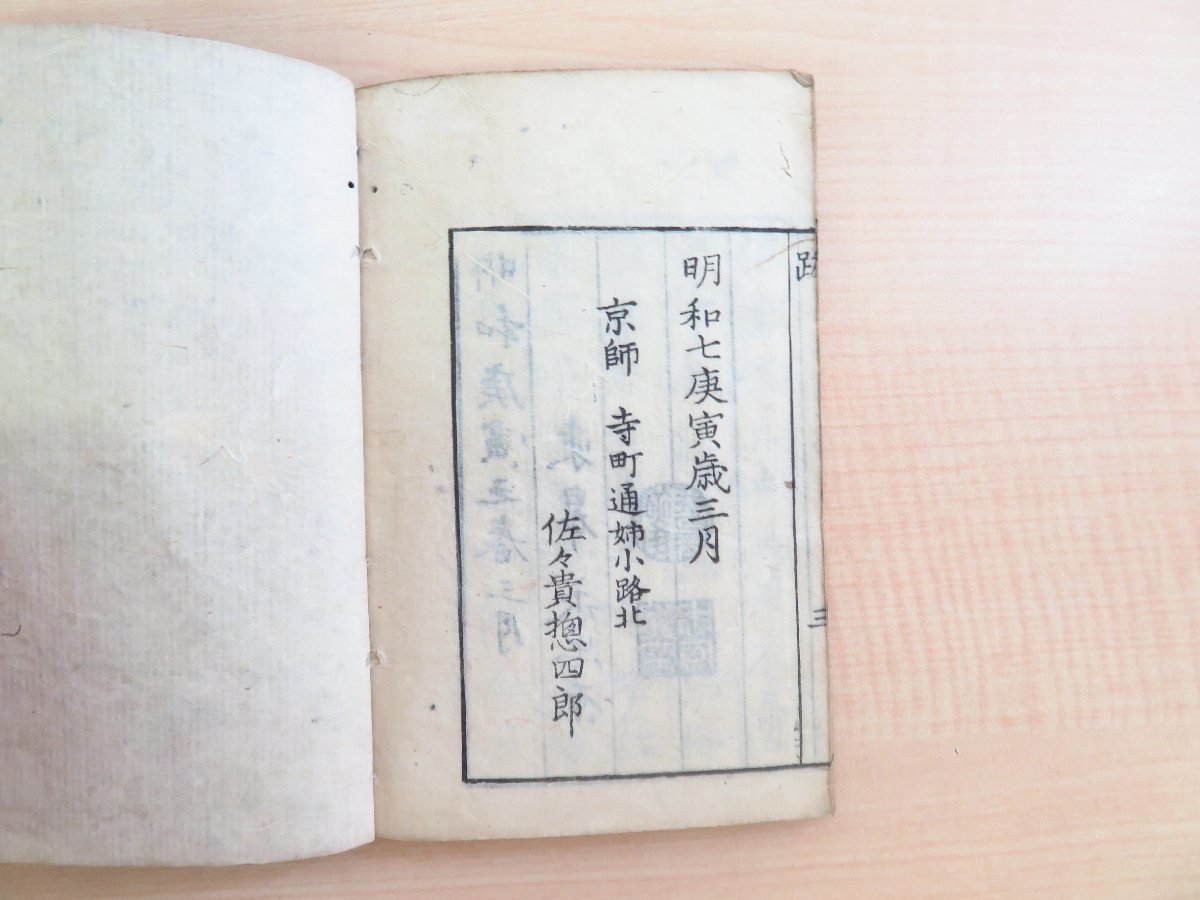 跋
三
明和七庚寅歳三月
京師 寺町通姉小路北
佐々貴摠四郎